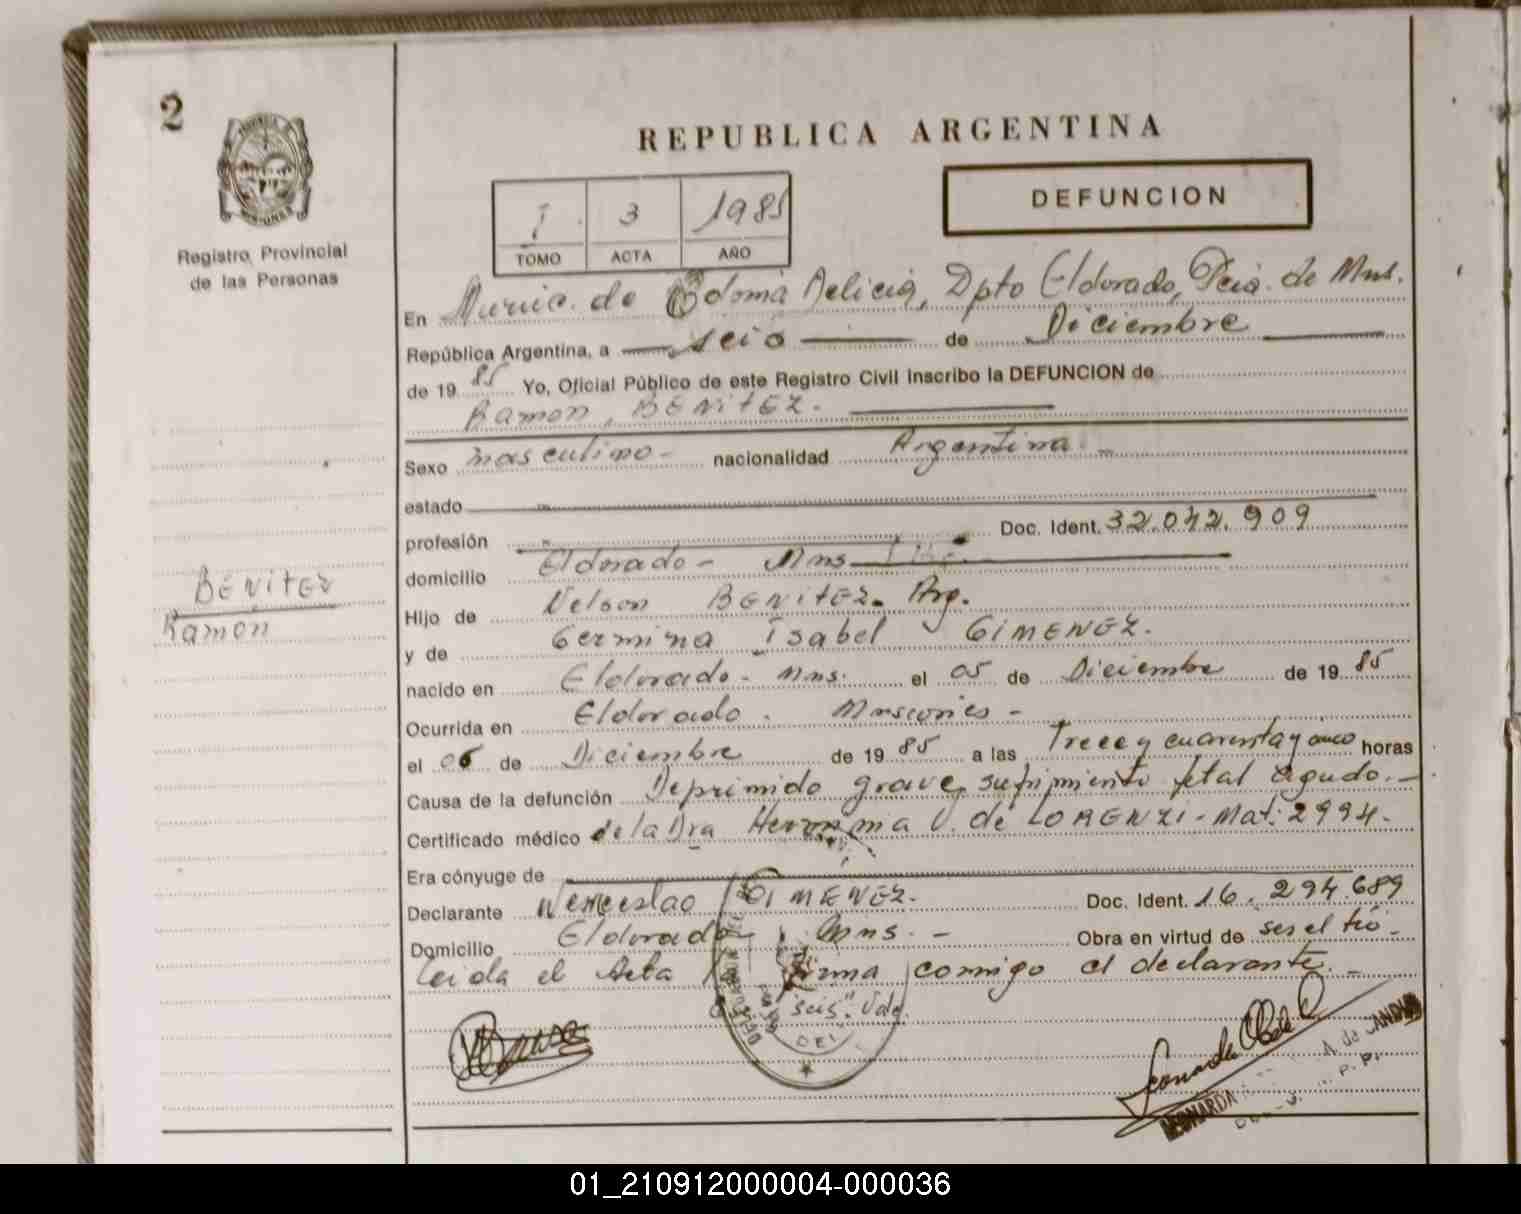 2
REPUBLICA ARGENTINA
I 3 1985
TOMO ACTA AÑO
DEFUNCION
Registro Provincial
de las Personas
En Munic. de Colonia Delicia, Dpto Eldorado, Pcia. de Mns.
República Argentina, a seis de Diciembre
de 19 85 Yo, Oficial Público de este Registro Civil Inscribo la DEFUNCION de
Ramon, BENITEZ.
Sexo masculino - nacionalidad Argentina
estado
profesión Doc. Ident. 32.042.909
domicilio Eldorado - Mns
BENITEZ
Ramon
Hijo de Nelson BENITEZ. Arg.
y de Germina Isabel GIMENEZ.
nacido en Eldorado - Mns. el 05 de Diciembre de 19 85
Ocurrida en Eldorado. Misiones -
el 06 de Diciembre de 19 85 a las Trece y cuarenta y cinco horas
Causa de la defunción Deprimido grave, sufrimiento fetal agudo. -
Certificado médico de la Dra Herminia V. de LORENZI - Mat: 2994.
Era cónyuge de
Declarante Wenceslao GIMENEZ. Doc. Ident. 16.294.689
Domicilio Eldorado, Mns. - Obra en virtud de ser el tío -
Leida el Acta firma conmigo el declarante. -
"seis". Vale.
LEONARDA A. de
01_210912000004-000036